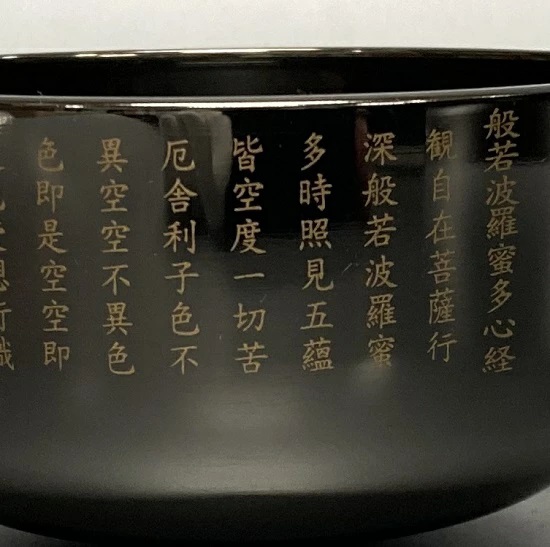 般若波羅蜜多心経
観自在菩薩行
深般若波羅蜜
多時照見五蘊
皆空度一切苦
厄舎利子色不
異空空不異色
色即是空空即
想行識